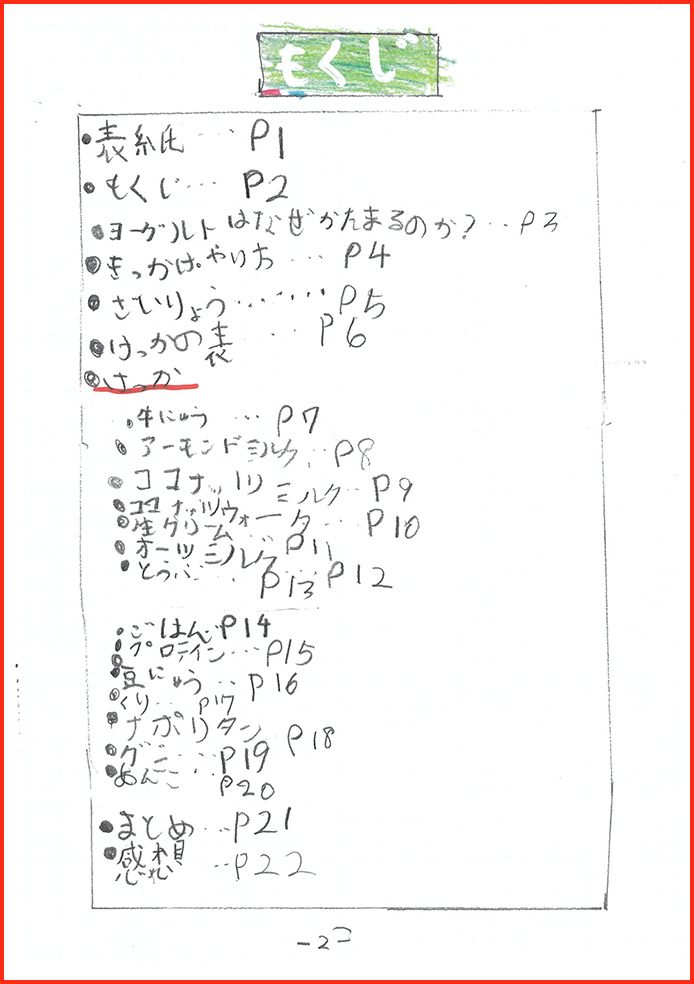 もくじ
•表紙… P1
•もくじ… P2
•ヨーグルトはなぜかたまるのか?… P3
•きっかけ。やり方 … P4
•ざいりょう…… P5
•けっかの表 … P6
•けっか
•牛にゅう … P7
•アーモンドミルク… P8
•ココナッツミルク… P9
•ココナッツウォーター… P10
•生クリーム… P11
•オーツミルク… P12
•とうふ… P13
•ごはん P14
•プロテイン… P15
•豆にゅう… P16
•くり… P17
•ナポリタン P18
•グミ… P19
•あんこ P20
•まとめ… P21
•感想 … P22
-2-